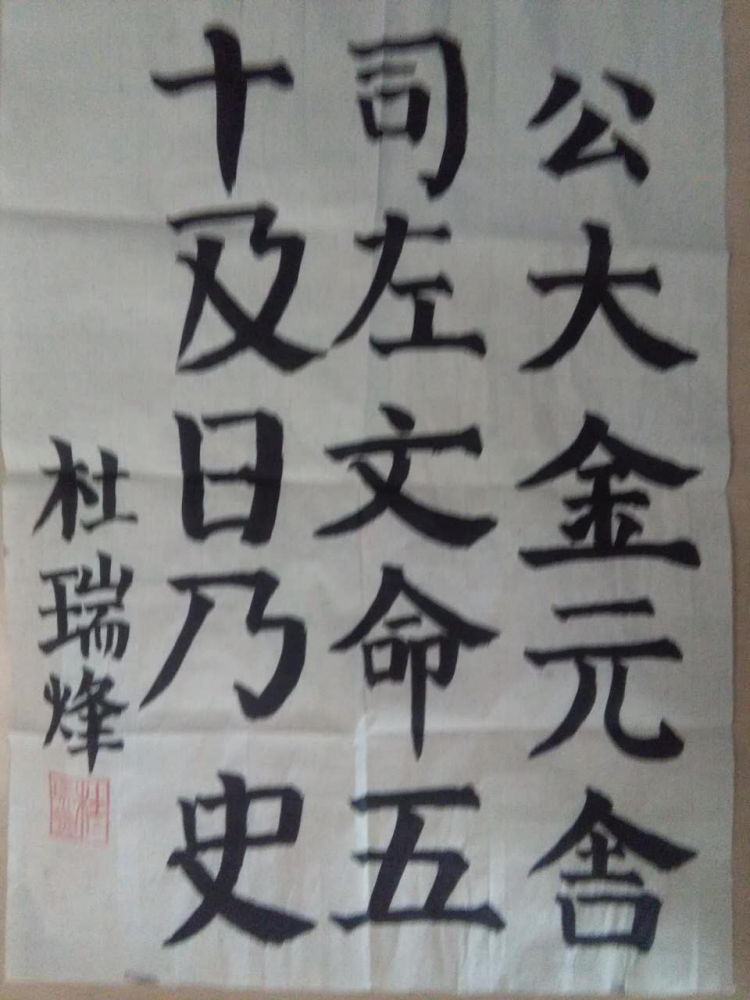 公大金元舍
司左文命五
十及日乃史
杜瑞烽